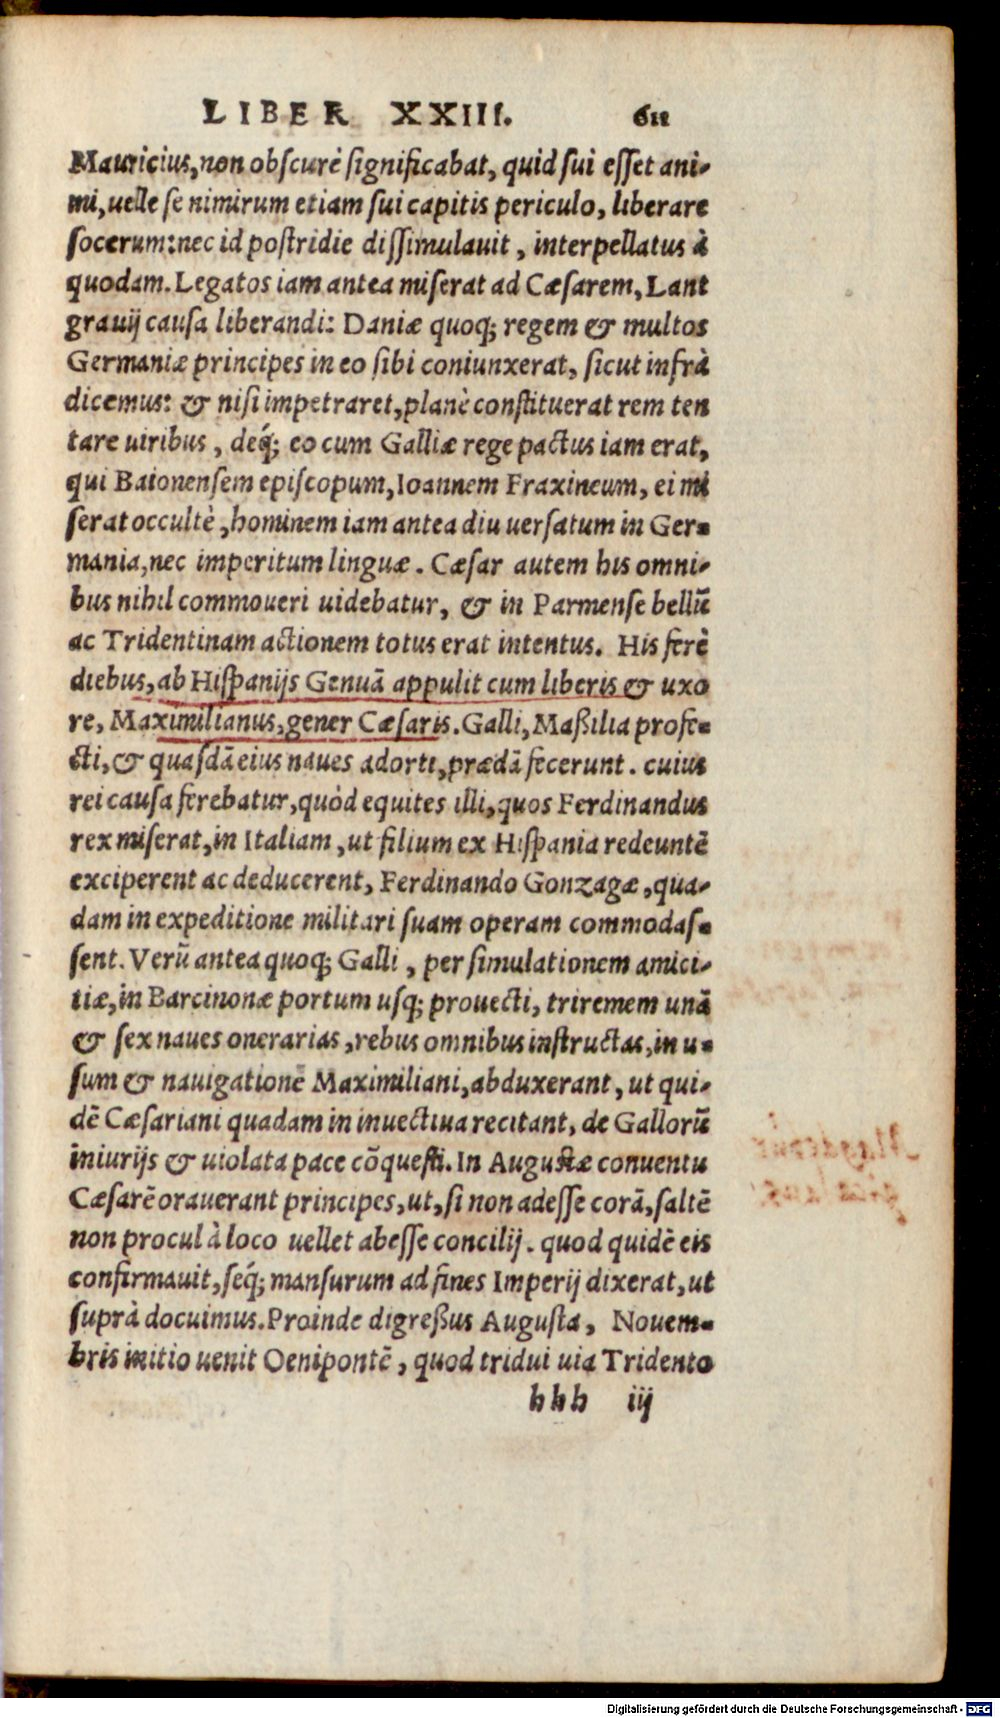 LIBER XXIII. 611
Mauricius, non obscurè significabat, quid sui esset ani-
mi, uelle se nimirum etiam sui capitis periculo, liberare
socerum: nec id postridie dissimulauit, interpellatus à
quodam. Legatos iam antea miserat ad Cæsarem, Lant
grauij causa liberandi: Daniæ quoq; regem & multos
Germaniæ principes in eo sibi coniunxerat, sicut infrà
dicemus: & nisi impetraret, planè constituerat rem ten
tare uiribus, deq́; eo cum Galliæ rege pactus iam erat,
qui Baionensem episcopum, Ioannem Fraxineum, ei mi
serat occultè, hominem iam antea diu uersatum in Ger-
mania, nec imperitum linguæ. Cæsar autem his omni-
bus nihil commoueri uidebatur, & in Parmense bellũ
ac Tridentinam actionem totus erat intentus. His ferè
diebus, ab Hispanijs Genuã appulit cum liberis & uxo
re, Maximilianus, gener Cæsaris. Galli, Maßilia profe-
cti, & quasdã eius naues adorti, prædã fecerunt. cuius
rei causa ferebatur, quòd equites illi, quos Ferdinandus
rex miserat, in Italiam, ut filium ex Hispania redeuntẽ
exciperent ac deducerent, Ferdinando Gonzagæ, qua-
dam in expeditione militari suam operam commodas-
sent. Verũ antea quoq; Galli, per simulationem amici-
tiæ, in Barcinonæ portum usq; prouecti, triremem unã
& sex naues onerarias, rebus omnibus instructas, in u-
sum & nauigationẽ Maximiliani, abduxerant, ut qui-
dẽ Cæsariani quadam in inuectiua recitant, de Gallorũ
iniurijs & uiolata pace cõquesti. In Augustæ conuentu
Cæsarẽ orauerant principes, ut, si non adesse corã, saltẽ
non procul à loco uellet abesse concilij. quod quidẽ eis
confirmauit, seq́; mansurum ad fines Imperij dixerat, ut
suprà docuimus. Proinde digreßus Augusta, Nouem-
bris initio uenit Oenipontẽ, quod tridui uia Tridento
hhh iij
Digitalisierung gefördert durch die Deutsche Forschungsgemeinschaft - DFG